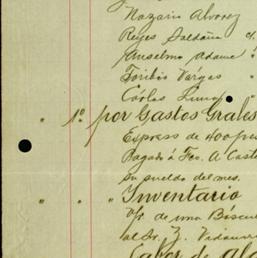 Nazario Alvarez
Reyes Saldaña
Anselmo Adame
Toribio Vargas
Cárlos Luna
" 1º por Gastos Grales
Espress de 400 pe
Pagado á Fco. A. Cast
su sueldo del mes.
" " Inventario
v/r de una Bascu
al Sr. Z. Vidaurr